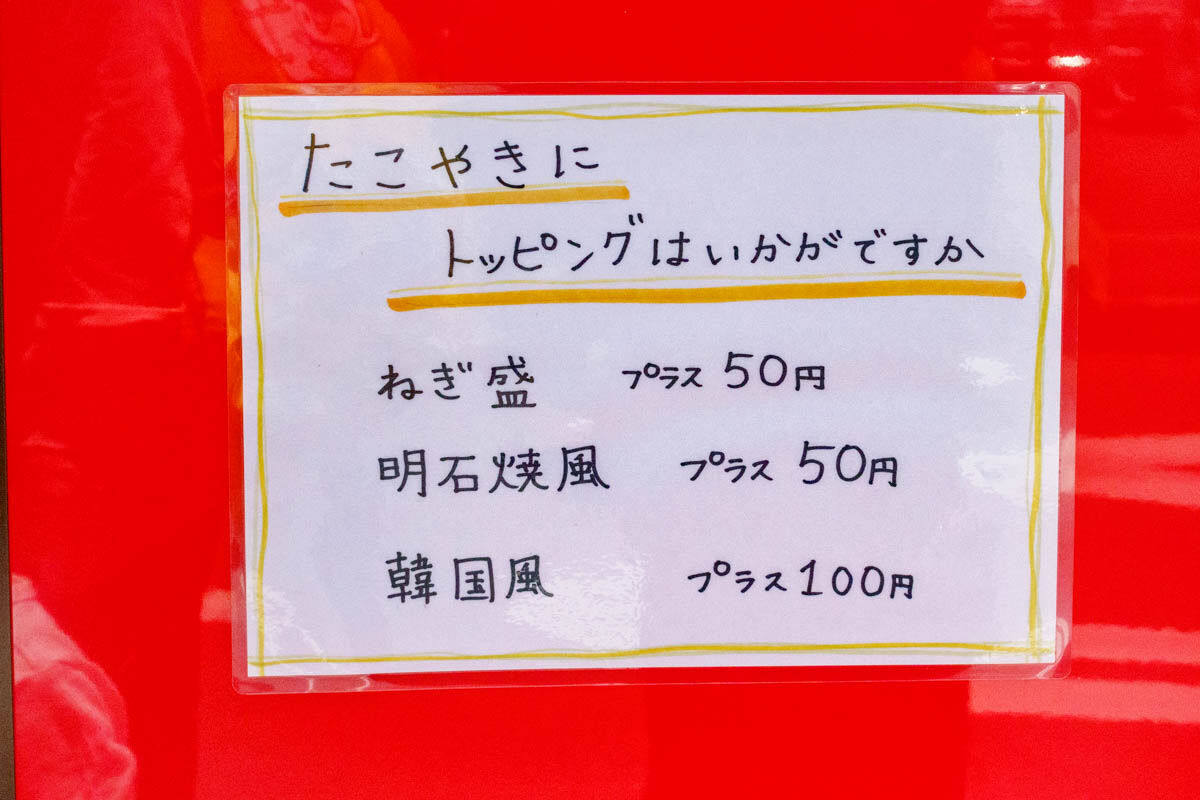 たこやきに
トッピングはいかがですか
ねぎ盛 プラス 50円
明石焼風 プラス 50円
韓国風 プラス 100円